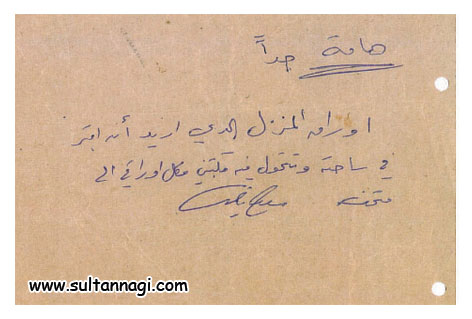 هامة جداً
اوراق المنزل الذي اريد أن اقبر
في ساحته وتتحول فيه مكتبتي وكل اوراقي الى
متحف
www.sultannagi.com